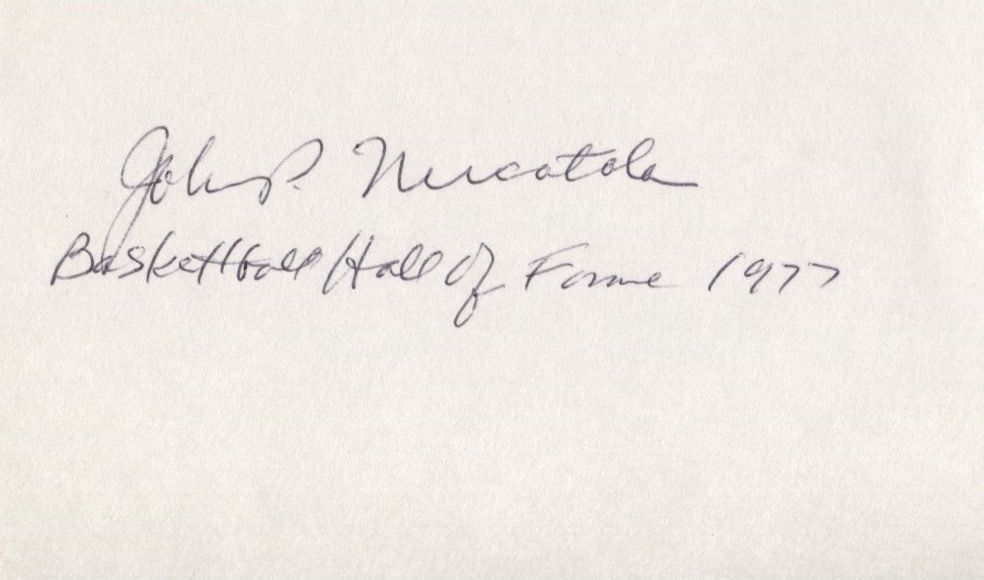 John P. Nucatola
Basketball Hall of Fame 1977